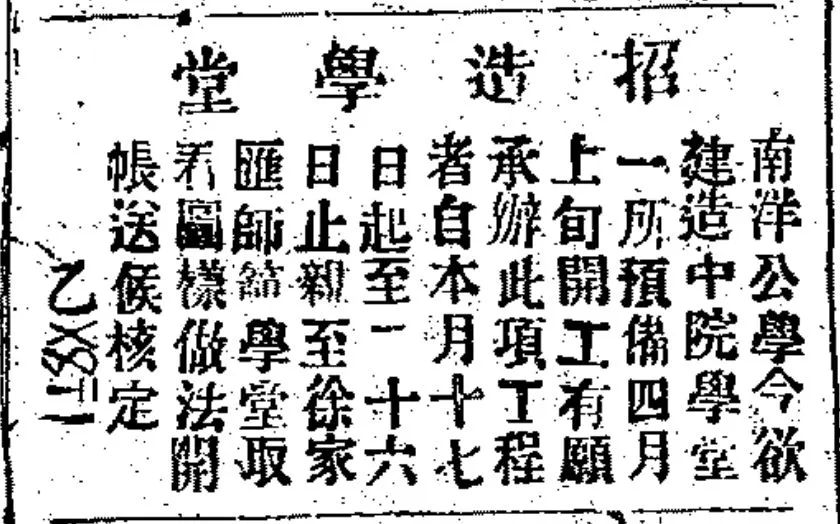 招造學堂
南洋公學今欲
建造中院學堂
一所預備四月
上旬開工有願
承辦此項工程
者自本月十七
日起至二十六
日止親至徐家
匯師範學堂取
看圖樣做法開
帳送候核定